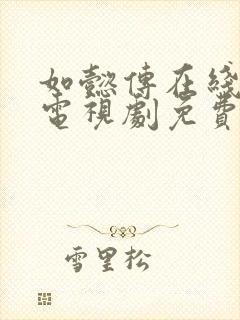 如懿傳在綫
電視劇免費
雪里松